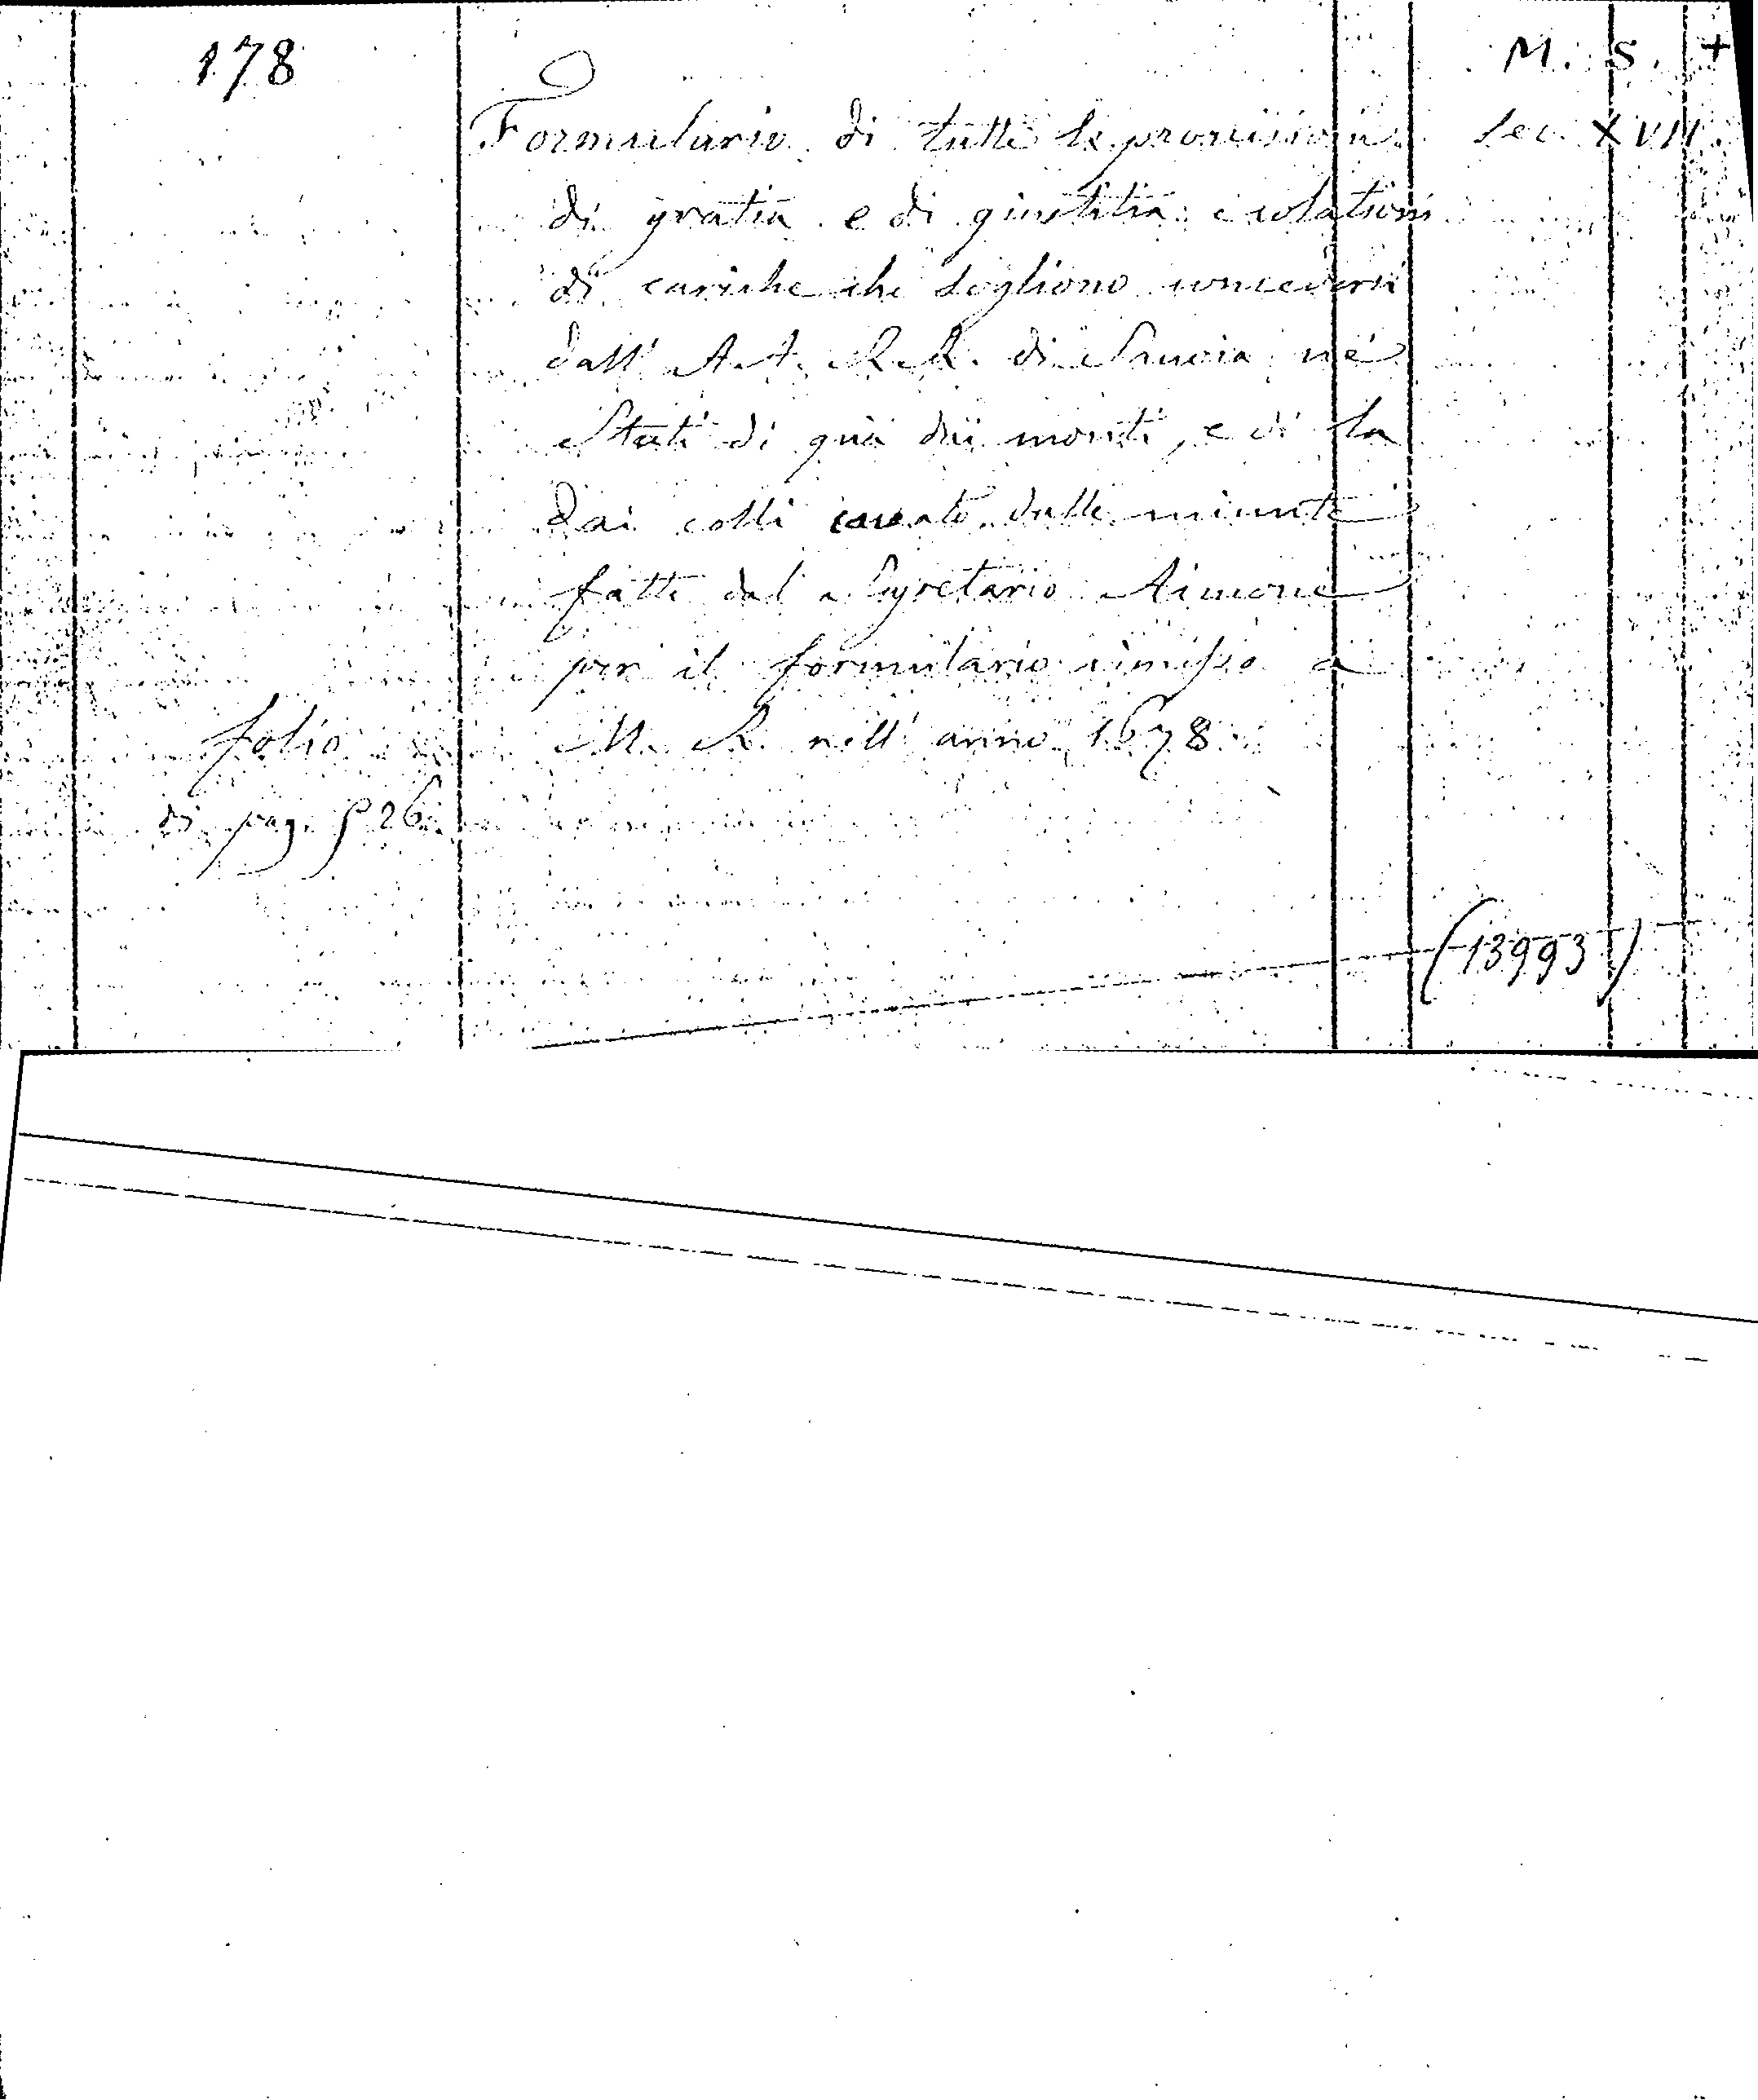 178
M. S. +
Formulario di tutte le provissioni
Sec. XVII.
di gratia e di giustitia e colationi
di cariche che sogliono concedersi
dall' A. A. R. R. di Sauoia ne
Stati di quà dai monti, e di la
dai colli cauato dalle minute
fatte dal Segretario Aimone
per il formulario rimesso a
folio
M. R. nell' anno 1678
di pag. 526.
(13993)